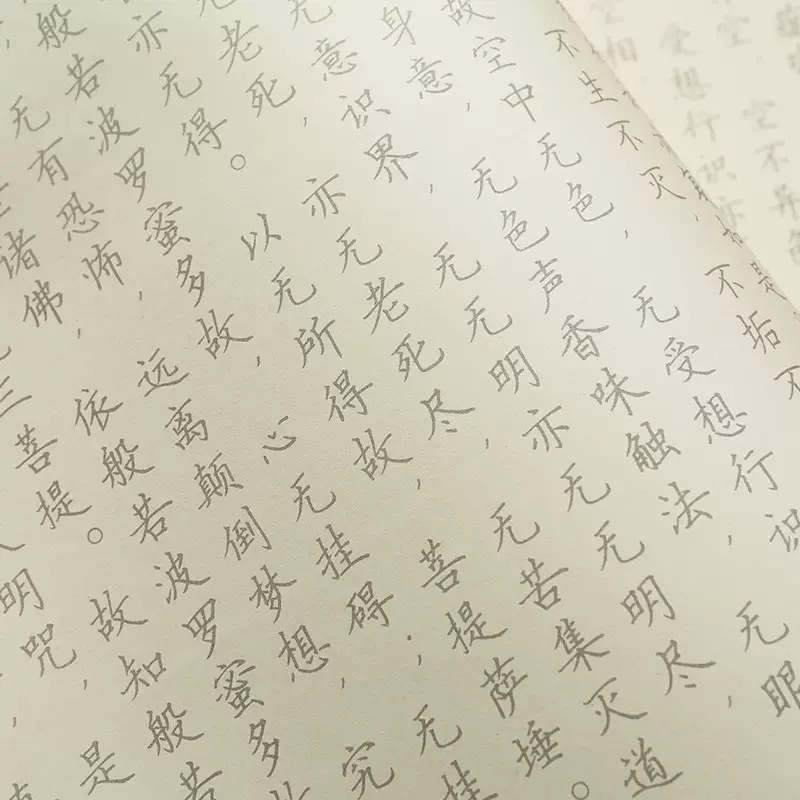 受想行识亦
空不异色
不生不灭，不垢不
故空中无色，无受想行识
身意，无色声香味触法，无眼
无意识界，无无明，亦无无明尽，
无老死，亦无老死尽，无苦集灭道
亦无得。以无所得故，菩提萨埵。
般若波罗蜜多故，心无挂碍；无挂
无有恐怖，远离颠倒梦想，究
三诸佛，依般若波罗蜜多故
三菩提。故知般若
明咒，是